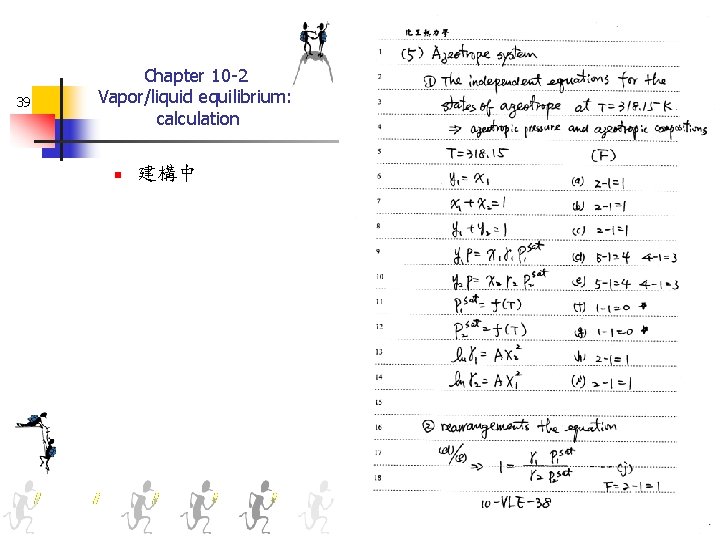 39
Chapter 10-2
Vapor/liquid equilibrium:
calculation
建構中
化工熱力學
1 (5) Azeotrope system
2 ① The independent equations for the
3 states of azeotrope at T=318.15 K
4 ⇒ azeotropic pressure and azeotropic compositions
5 T=318.15 (F)
6 y₁ = x₁ (a) 2-1=1
7 x₁ + x₂ = 1 (b) 2-1=1
8 y₁ + y₂ = 1 (c) 2-1=1
9 y₁P = x₁γ₁P₁ˢᵃᵗ (d) 5-1=4 4-1=3
10 y₂P = x₂γ₂P₂ˢᵃᵗ (e) 5-1=4 4-1=3
11 P₁ˢᵃᵗ = f(T) (f) 1-1=0 *
12 P₂ˢᵃᵗ = f(T) (g) 1-1=0 *
13 lnγ₁ = AX₂² (h) 2-1=1
14 lnγ₂ = AX₁² (i) 2-1=1
15
16 ② rearrangements the equation
17 (d)/(e) ⇒ 1 = γ₁P₁ˢᵃᵗ / γ₂P₂ˢᵃᵗ (j)
18 F=2-1=1
10-VLE-38